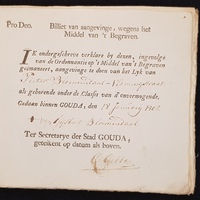 Pro Deo. Billet van aangevinge, wegens het
Middel van 't Begraven.
IK ondergeschreven verklare by dezen, ingevolge
van de Ordonnantie op 't Middel van 't Begraven
geëmaneert, aangevinge te doen van het Lyk van
Pieter Bloemendaal
als gehorende onder de Classis van d'onvermogende.
Gedaan binnen GOUDA, den 18 January
Bloemendaal
Ter Secretarye der Stad GOUDA,
geteikent op datum als boven.